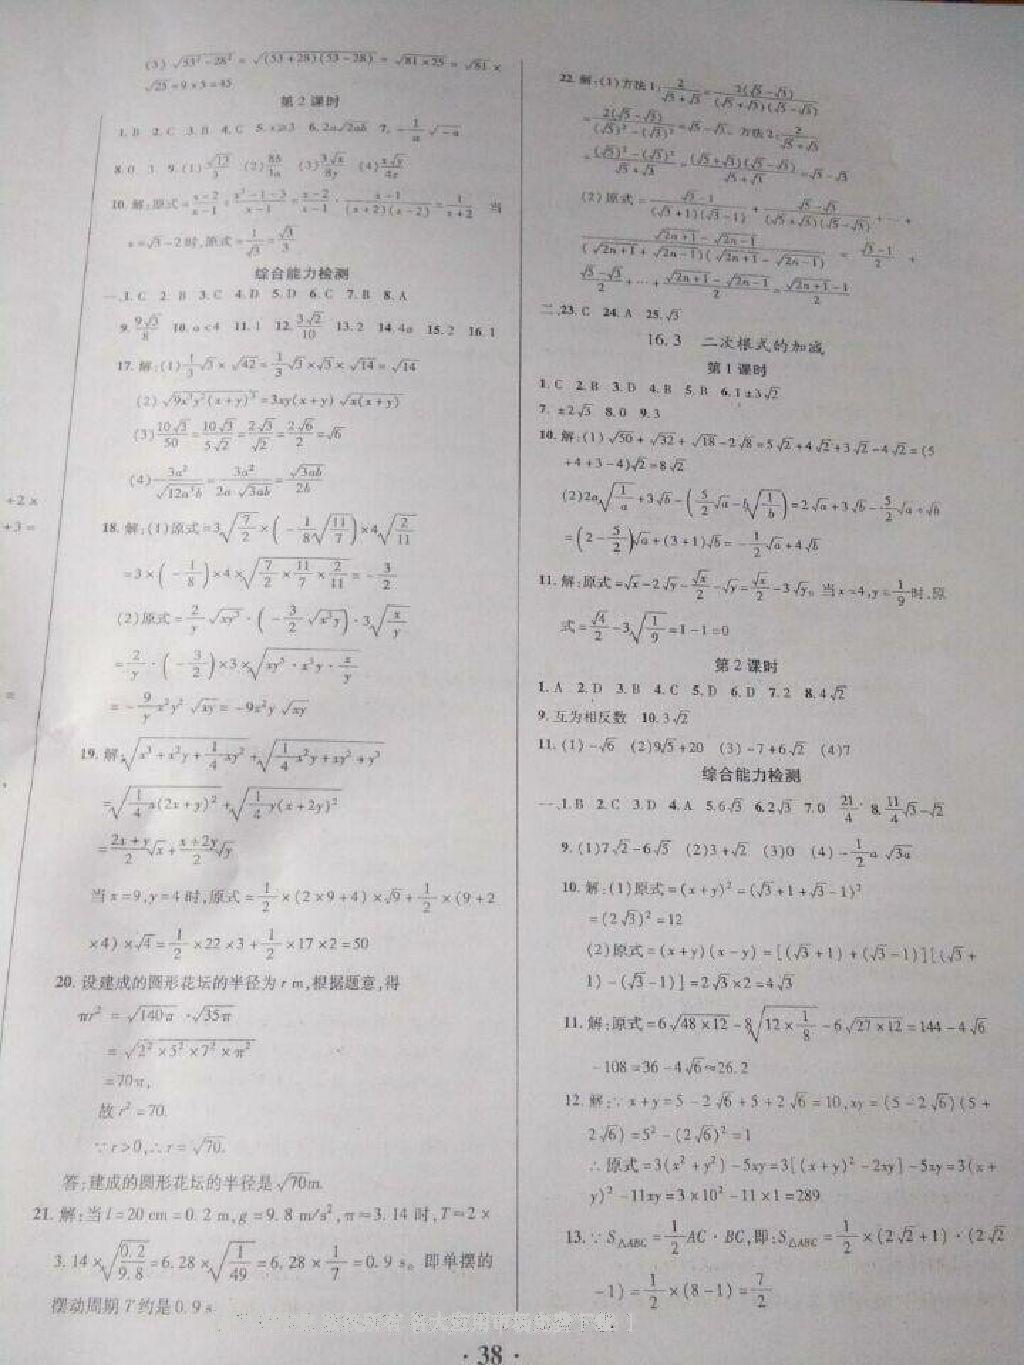 (3) √(53²-28²) = √((53+28)(53-28)) = √(81×25) = √81 ×
√25 = 9×5 = 45
第 2 课时
1. D 2. C 3. B 4. C 5. x≥3 6. 2a√(2ab) 7. -1/a √(-a)
8. 0 1 9. (1) √13/3 (3) 3√x/8y
10. 解:原式 = (x-2)/(x-1) ÷ (x²-1-3)/(x-1) = (x-2)/(x-1) · (x-1)/((x+2)(x-2)) = 1/(x+2) 当
x=√3-2 时,原式 = 1/√3 = √3/3
综合能力检测
一、1. C 2. B 3. C 4. D 5. D 6. C 7. B 8. A
9. 9√3/8 10. a<4 11. 1 12. 3√2/10 13. 2 14. 4a 15. 2 16. 1
17. 解:(1) 1/3 √3 × √42 = 1/3 √3×√3×√14 = √14
(2) √(9x³y²(x+y)³) = 3xy(x+y)√(x(x+y))
(3) 10√3/50 = 10√3/5√2 = 2√3/√2 = 2√6/2 = √6
(4) 3a²/√(12a³b) = 3a²/(2a√(3ab)) = √(3ab)/2b
18. 解:(1)原式 = 3√(7/2) × (-1/8 √(11/7)) × 4√(2/11)
= 3×(-1/8)×4×√(7/2 × 11/7 × 2/11) = -3/2
(2)原式 = 2/y √(xy⁵) · (-3/2 √(x³y)) · 3√(x/y)
= 2/y · (-3/2)×3×√(xy⁵·x³y·x/y)
= -9/y x²y² √(xy) = -9x²y √(xy)
19. 解:√(x³+x²y+1/4 xy²) + √(1/4 x²y+xy²+y³)
= √(1/4 x(2x+y)²) + √(1/4 y(x+2y)²)
= (2x+y)/2 √x + (x+2y)/2 √y
当 x=9,y=4 时,原式 = 1/2 ×(2×9+4)×√9 + 1/2 ×(9+2
×4)×√4 = 1/2 ×22×3 + 1/2 ×17×2 = 50
20. 设建成的圆形花坛的半径为 r m,根据题意,得
πr² = √(140π) · √(35π)
= √(2²×5²×7²×π²)
= 70π,
故 r² = 70.
∵r>0,∴r=√70.
答:建成的圆形花坛的半径是√70m.
21. 解:当 l=20 cm=0.2 m,g=9.8 m/s²,π≈3.14 时,T≈2×
3.14×√(0.2/9.8) = 6.28×√(1/49) = 6.28×1/7 = 0.9 s。即单摆的
摆动周期 T 约是 0.9 s
22. 解:(1)方法1: 2/(√5+√3) = 2(√5-√3)/((√5+√3)(√5-√3))
= 2(√5-√3)/((√5)²-(√3)²) = √5-√3. 方法2: 2/(√5+√3)
= ((√5)²-(√3)²)/(√5+√3) = (√5+√3)(√5-√3)/(√5+√3) = √5-√3
(2)原式 = (√3-1)/((√3+1)(√3-1)) + (√5-√3)/((√5+√3)(√5-√3)) + ⋯ +
(√(2n+1)-√(2n-1))/((√(2n+1)+√(2n-1))(√(2n+1)-√(2n-1))) = (√3-1)/2 +
(√5-√3)/2 + ⋯ + (√(2n+1)-√(2n-1))/2 = (√(2n+1)-1)/2
二、23. C 24. A 25. √3
16.3 二次根式的加减
第 1 课时
1. C 2. B 3. D 4. B 5. B 6. 1±3√2
7. ±2√3 8. 0 9. 3
10. 解:(1) √50+√32+√18-2√8 = 5√2+4√2+3√2-4√2 = (5
+4+3-4)√2 = 8√2
(2) 2a√(1/a) + 3√b - (5/2 √a - b√(1/b)) = 2√a+3√b-5/2 √a+√b
= (2-5/2)√a+(3+1)√b = -1/2 √a+4√b
11. 解:原式 = √x-2√y-√x/2-√y = √x/2-3√y。当 x=4,y=1/9 时,原
式 = √4/2-3√(1/9) = 1-1 = 0
第 2 课时
1. A 2. D 3. B 4. C 5. D 6. D 7. 2 8. 4√2
9. 互为相反数 10. 3√2
11. (1) -√6 (2) 9√5+20 (3) -7+6√2 (4) 7
综合能力检测
一、1. B 2. C 3. D 4. A 5. 6√3 6. 2√3 7. 0 21/4 8. 11/4 √3-√2
9. (1) 7√2-6√5 (2) 3+√2 (3) 0 (4) -1/2 a √(3a)
10. 解:(1)原式 = (x+y)² = (√3+1+√3-1)²
= (2√3)² = 12
(2)原式 = (x+y)(x-y) = [(√3+1)+(√3-1)][(√3+
1)-(√3-1)] = 2√3×2 = 4√3
11. 解:原式 = 6√(48×12)-8√(12×1/8)-6√(27×12) = 144-4√6
-108 = 36-4√6 ≈ 26.2
12. 解:∵x+y=5-2√6+5+2√6=10,xy=(5-2√6)(5+
2√6)=5²-(2√6)²=1
∴原式 = 3(x²+y²)-5xy = 3[(x+y)²-2xy]-5xy = 3(x+
y)²-11xy = 3×10²-11×1 = 289
13. ∵S△ABC = 1/2 AC·BC,即:S△ABC = 1/2 ×(2√2+1)·(2√2
-1) = 1/2 ×(8-1) = 7/2
+2×
+3=
=
· 38 ·